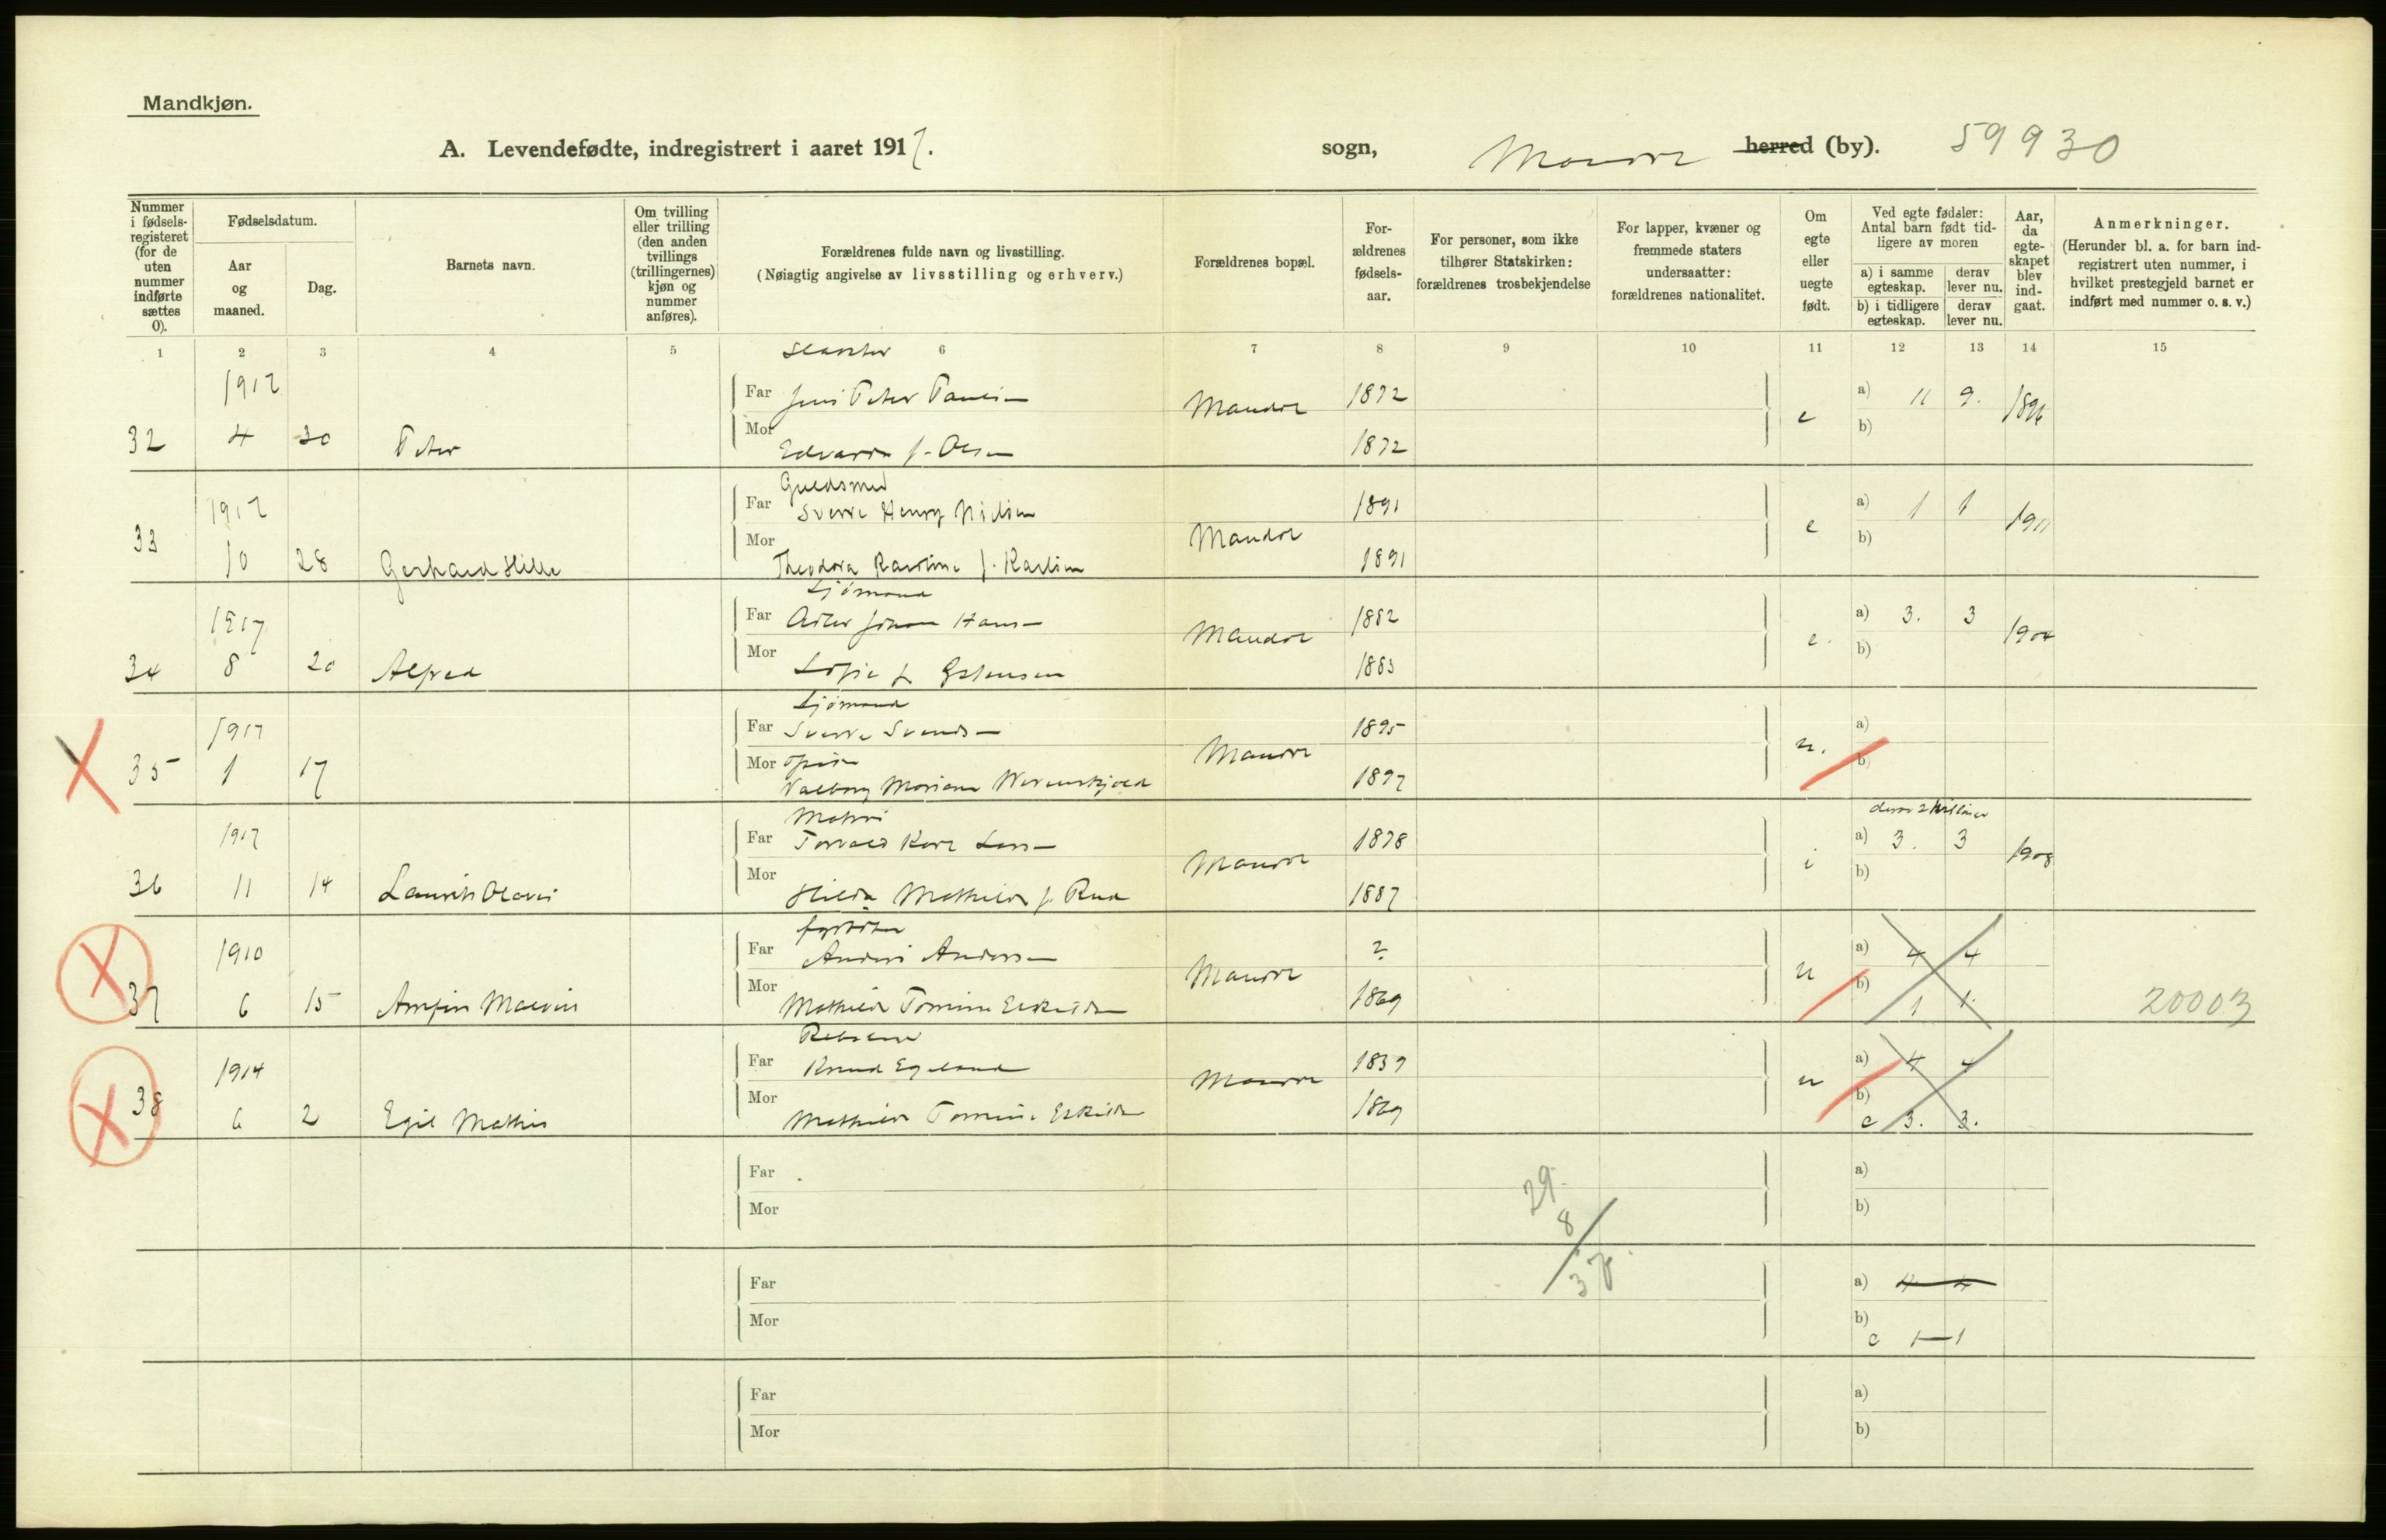 Mandkjøn.
A. Levendefødte, indregistrert i aaret 1917.
sogn, herred (by). 59930
Nummer i fødsels-registeret (for de uten nummer indførte sættes 0).
Fødselsdatum.
Aar og maaned.
Dag.
Barnets navn.
Om tvilling eller trilling (den anden tvillings (trillingernes) kjøn og nummer anføres).
Forældrenes fulde navn og livsstilling.
(Nøiagtig angivelse av livsstilling og erhverv.)
Forældrenes bopæl.
For-ældrenes fødsels-aar.
For personer, som ikke tilhører Statskirken: forældrenes trosbekjendelse
For lapper, kvæner og fremmede staters undersaatter: forældrenes nationalitet.
Om egte eller uegte født.
Ved egte fødsler: Antal barn født tid-ligere av moren
a) i samme egteskap.
derav lever nu.
b) i tidligere egteskap.
derav lever nu.
Aar, da egte-skapet blev ind-gaat.
Anmerkninger.
(Herunder bl. a. for barn ind-registrert uten nummer, i hvilket prestegjeld barnet er indført med nummer o. s. v.)
1 2 3 4 5 6 7 8 9 10 11 12 13 14 15
1917
Far Jens Peter 1872 a) 11 9. 1896
32 4 30 Peter Mor Edvarda f. Olsen Mandal 1872 e b)
Guldsmed
1917 Far Sverre Henry Nielsen 1891 a) 1 1 1911
33 10 28 Gerhard Hille Mor Theodora Karoline f. Karlsen Mandal 1891 e b)
Sjømand
1917 Far Johan Hansen 1882 a) 3. 3 1904
34 8 20 Alfred Mor Sofie f. Mandal 1883 e. b)
Sjømand
1917 Far Sverre Svendsen 1895 a)
35 1 17 Mor Valborg Mariane Werenskjold Mandal 1897 u. b)
1917 Far Torvald Larsen 1878 a) 3. 3 1908
36 11 14 Laurits Mor Hilda Mathilde f. Rud Mandal 1887 b)
fyrbøter
1910 Far Anders Andersen ? a) 4 4
37 6 15 Arnfin Mor Mathilde Tomine Mandal 1869 u b) 1 1. 20003
1914 Far Knud Egeland 1839 a) 4 4
38 6 2 Egil Mathis Mor Mathilde Tomine Mandal 1869 u b) c 3. 3.
Far a)
Mor b)
29.
8
37.
Far a) 4 4
Mor b)
c 1 1
Far a)
Mor b)